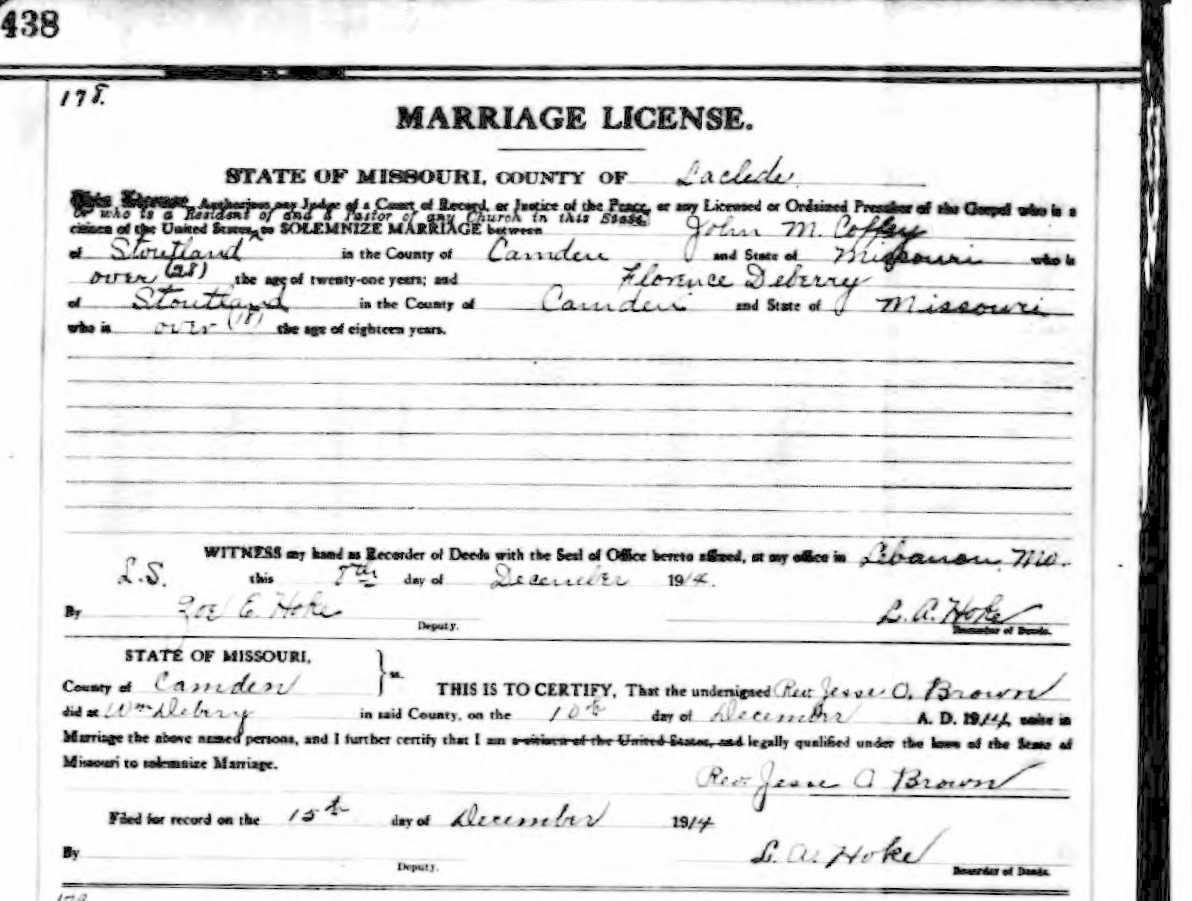 438
178.
MARRIAGE LICENSE.
STATE OF MISSOURI, COUNTY OF Laclede
This License Authorizes any Judge of a Court of Record, or Justice of the Peace, or any Licensed or Ordained Preacher of the Gospel who is a
or who is a Resident of and a Pastor of any Church in this State,
citizen of the United States, to SOLEMNIZE MARRIAGE between John M. Coffey
of Stoutland in the County of Camden and State of Missouri who is
over (28) the age of twenty-one years; and Florence Deberry
of Stoutland in the County of Camden and State of Missouri
who is over (18) the age of eighteen years.
WITNESS my hand as Recorder of Deeds with the Seal of Office hereto affixed, at my office in Lebanon, Mo.
L.S. this 8th day of December 1914.
By Zoe E. Hoke Deputy. L. A. Hoke Recorder of Deeds.
STATE OF MISSOURI,
County of Camden } ss. THIS IS TO CERTIFY, That the undersigned Rev. Jesse O. Brown
did at Wm Debery in said County, on the 10th day of December A. D. 1914, unite in
Marriage the above named persons, and I further certify that I am a citizen of the United States, and legally qualified under the laws of the State of
Missouri to solemnize Marriage.
Rev. Jesse O Brown
Filed for record on the 15th day of December 1914
By Deputy. L. A. Hoke Recorder of Deeds.